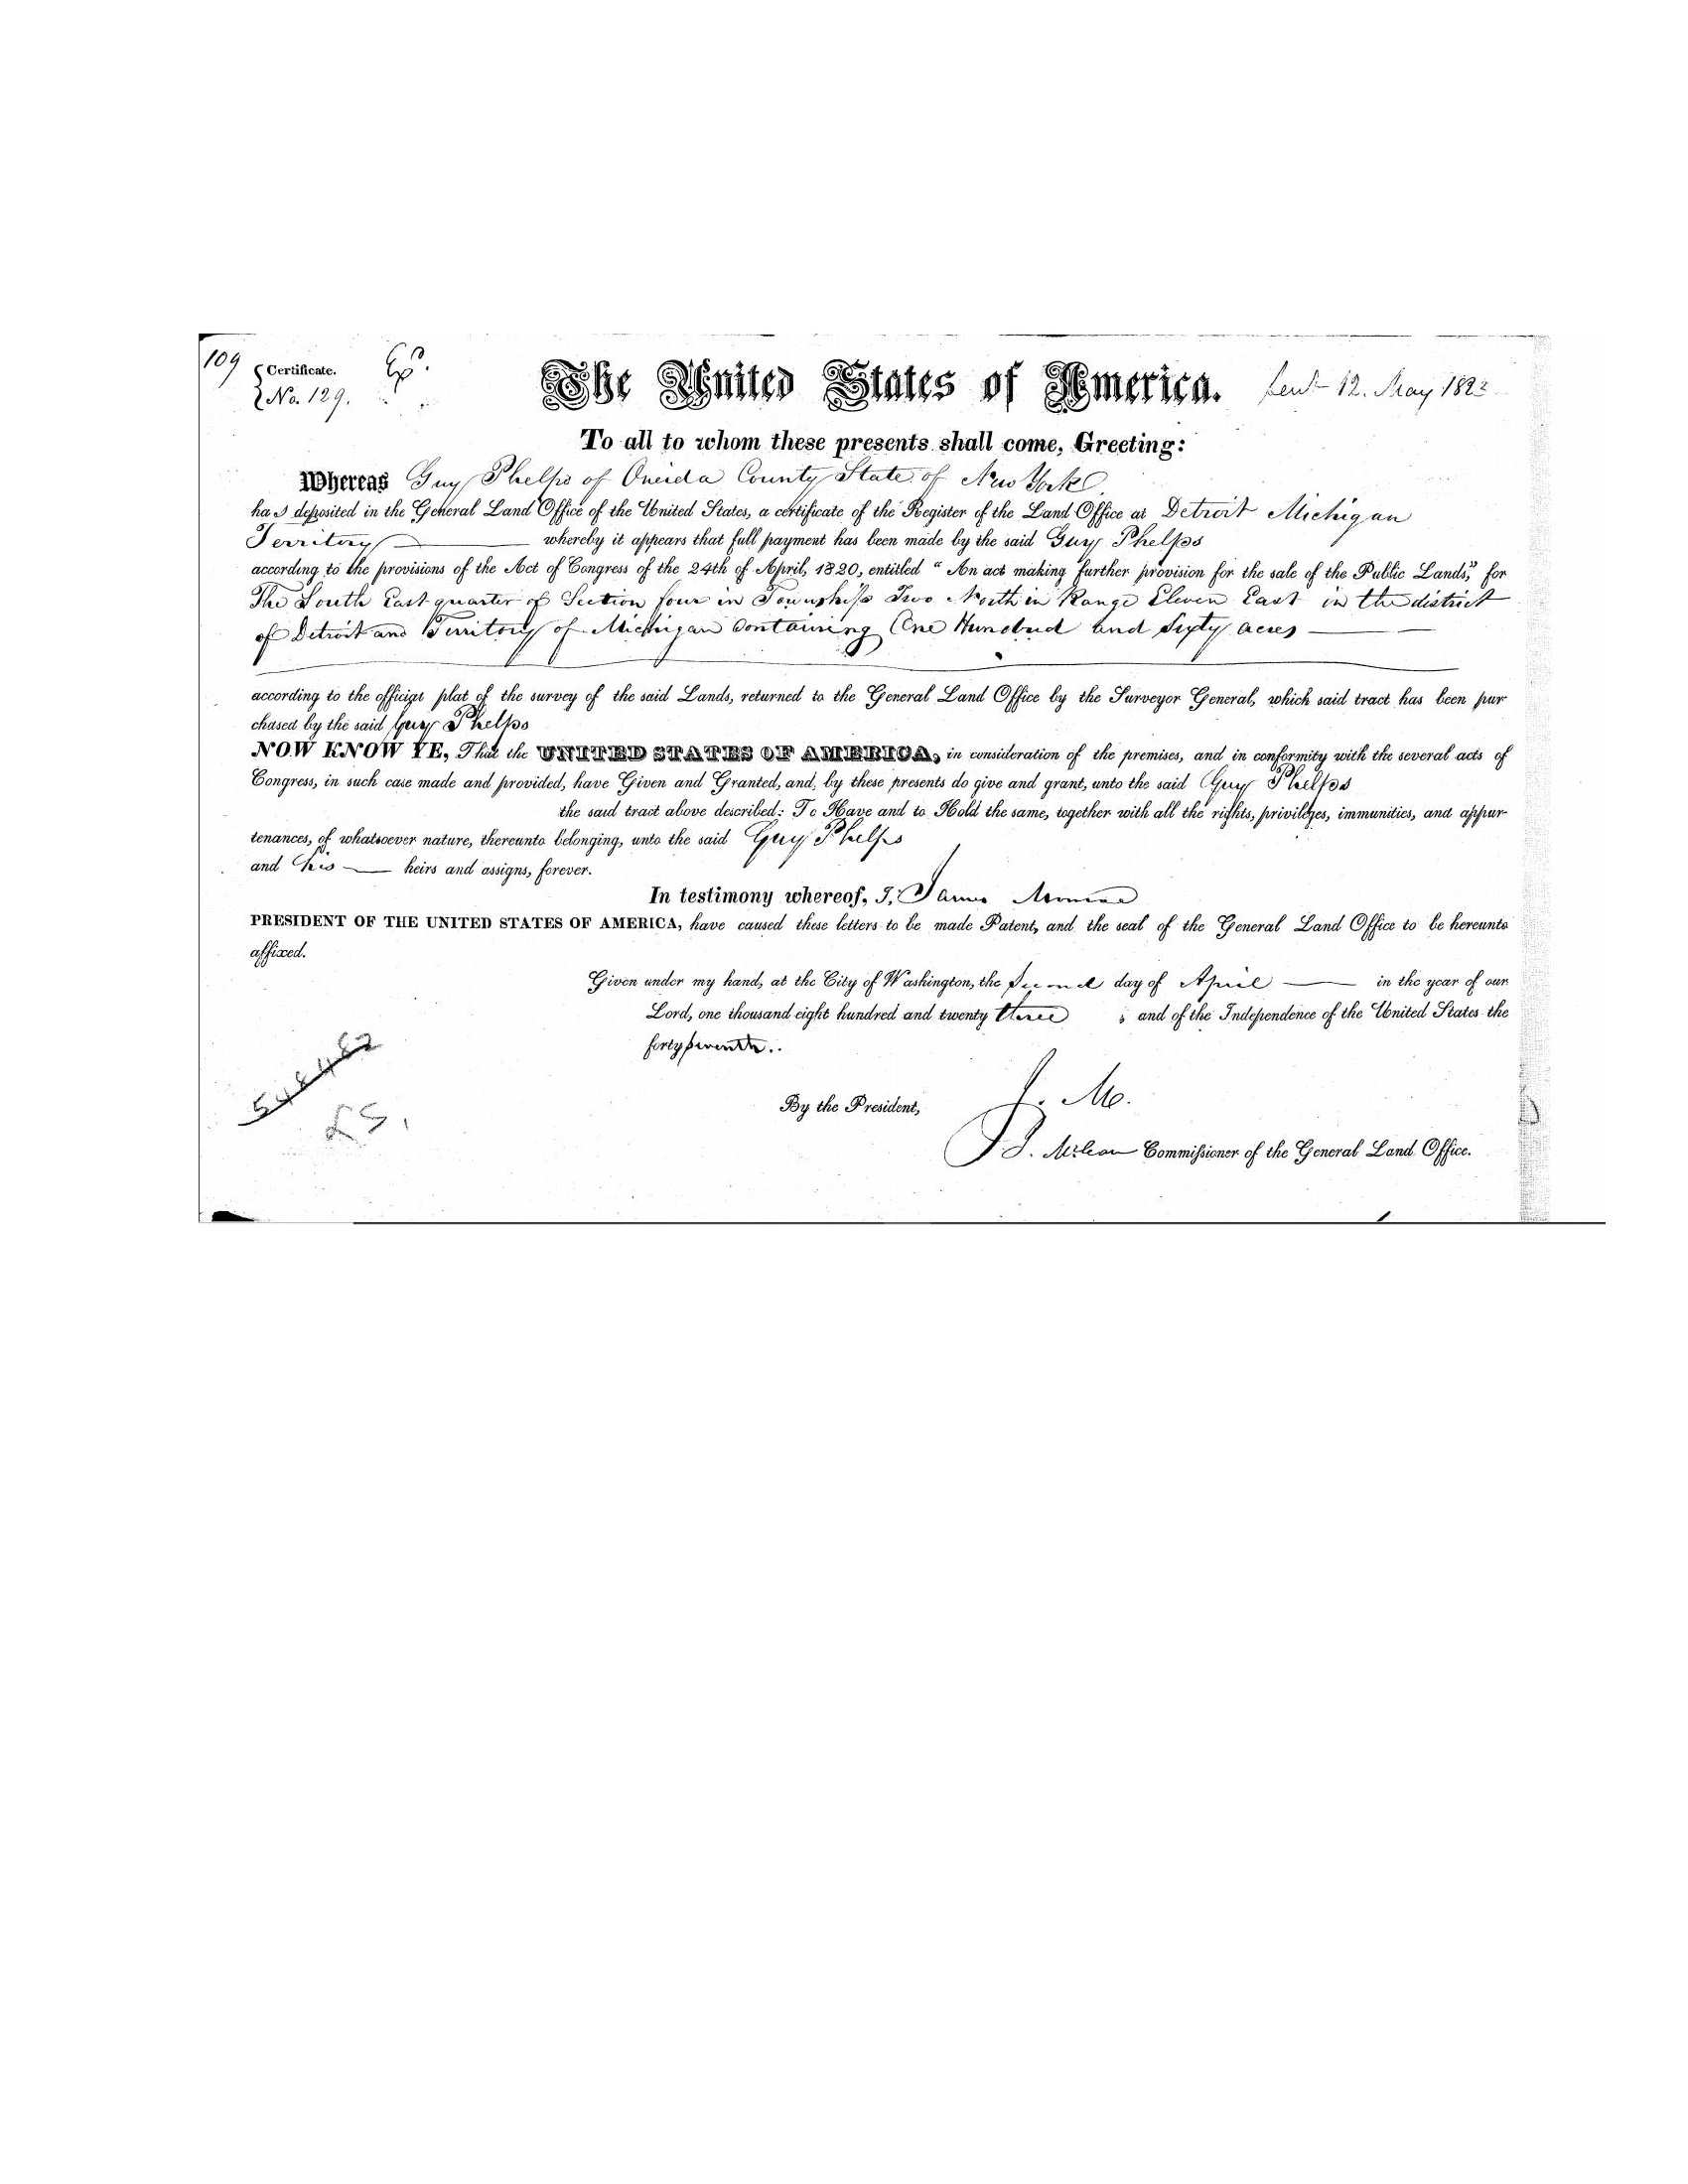 109
Certificate.
No. 129.
Exd.
The United States of America.
Sent 12. May 1823
To all to whom these presents shall come, Greeting:
Whereas Guy Phelps of Oneida County State of New York
has deposited in the General Land Office of the United States, a certificate of the Register of the Land Office at Detroit Michigan
Territory whereby it appears that full payment has been made by the said Guy Phelps
according to the provisions of the Act of Congress of the 24th of April, 1820, entitled “An act making further provision for the sale of the Public Lands,” for
The South East quarter of Section four in Township Two North in Range Eleven East in the district
of Detroit and Territory of Michigan Containing One Hundred and Sixty acres
according to the official plat of the survey of the said Lands, returned to the General Land Office by the Surveyor General, which said tract has been pur
chased by the said Guy Phelps
NOW KNOW YE, That the UNITED STATES OF AMERICA, in consideration of the premises, and in conformity with the several acts of
Congress, in such case made and provided, have Given and Granted, and, by these presents do give and grant, unto the said Guy Phelps
the said tract above described: To Have and to Hold the same, together with all the rights, privileges, immunities, and appur-
tenances, of whatsoever nature, thereunto belonging, unto the said Guy Phelps
and his heirs and assigns, forever.
In testimony whereof, I, James Monroe
PRESIDENT OF THE UNITED STATES OF AMERICA, have caused these letters to be made Patent, and the seal of the General Land Office to be hereunto
affixed.
Given under my hand, at the City of Washington, the Second day of April in the year of our
Lord, one thousand eight hundred and twenty three ; and of the Independence of the United States the
forty seventh..
LS.
By the President, J. M.
J. McLean Commissioner of the General Land Office.